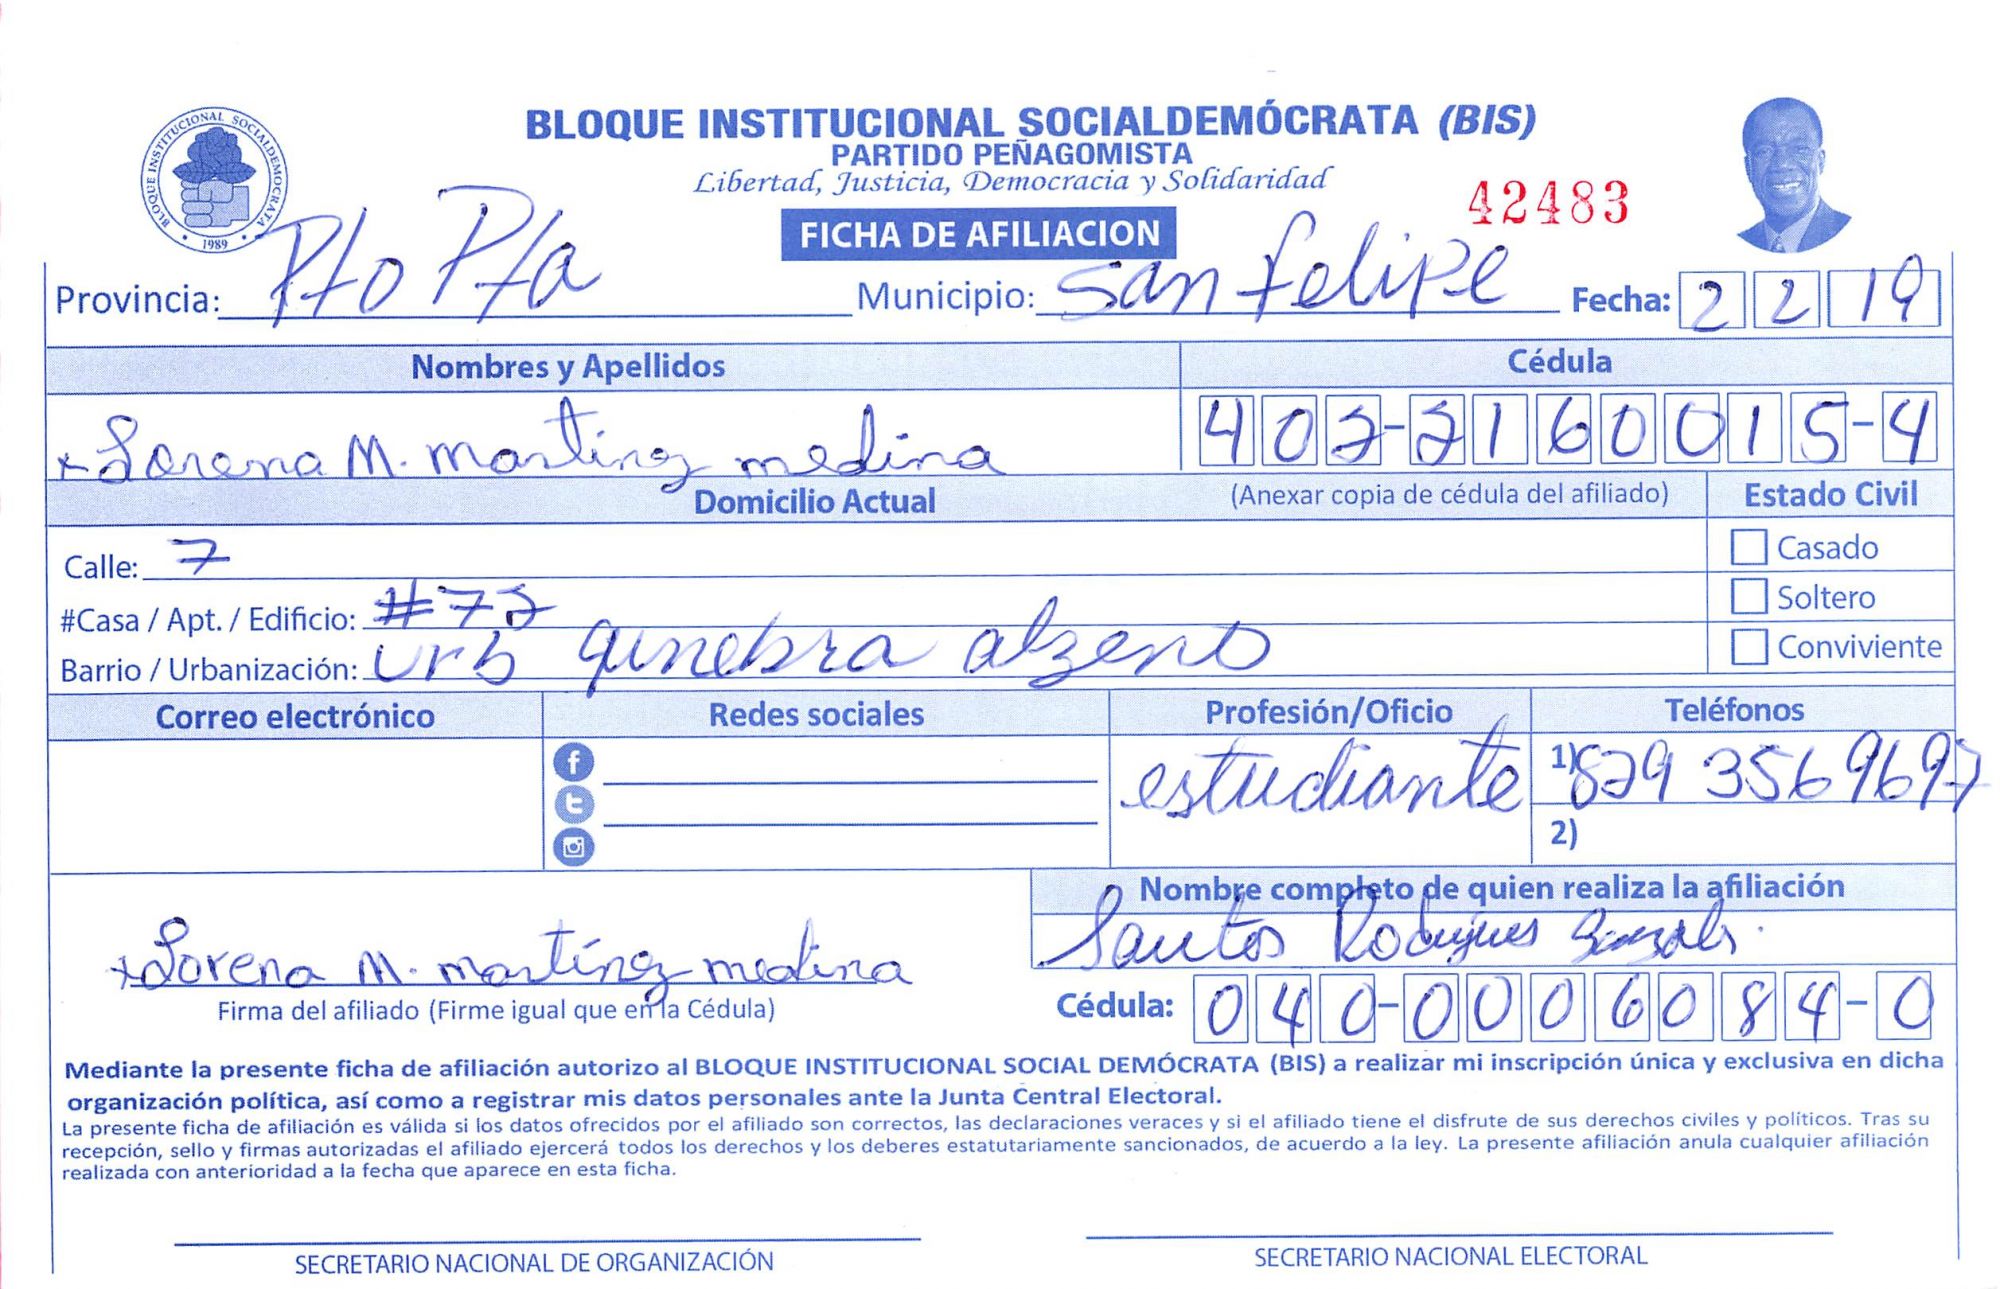 BLOQUE INSTITUCIONAL SOCIALDEMOCRATA
1989
BLOQUE INSTITUCIONAL SOCIALDEMÓCRATA (BIS)
PARTIDO PEÑAGOMISTA
Libertad, Justicia, Democracia y Solidaridad
42483
FICHA DE AFILIACION
Provincia: Pto Pta Municipio: San Felipe Fecha: 2 2 19
Nombres y Apellidos Cédula
x Lorena M. martinez medina 402-2160015-4
Domicilio Actual (Anexar copia de cédula del afiliado) Estado Civil
Calle: 7 Casado
#Casa / Apt. / Edificio: #72 Soltero
Barrio / Urbanización: Urb ginebra alzeno Conviviente
Correo electrónico Redes sociales Profesión/Oficio Teléfonos
estudiante 1) 829 356 9697
2)
Nombre completo de quien realiza la afiliación
Santos Rodrigues
x Lorena M. martínez medina
Firma del afiliado (Firme igual que en la Cédula) Cédula: 040-0006084-0
Mediante la presente ficha de afiliación autorizo al BLOQUE INSTITUCIONAL SOCIAL DEMÓCRATA (BIS) a realizar mi inscripción única y exclusiva en dicha
organización política, así como a registrar mis datos personales ante la Junta Central Electoral.
La presente ficha de afiliación es válida si los datos ofrecidos por el afiliado son correctos, las declaraciones veraces y si el afiliado tiene el disfrute de sus derechos civiles y políticos. Tras su
recepción, sello y firmas autorizadas el afiliado ejercerá todos los derechos y los deberes estatutariamente sancionados, de acuerdo a la ley. La presente afiliación anula cualquier afiliación
realizada con anterioridad a la fecha que aparece en esta ficha.
SECRETARIO NACIONAL DE ORGANIZACIÓN SECRETARIO NACIONAL ELECTORAL